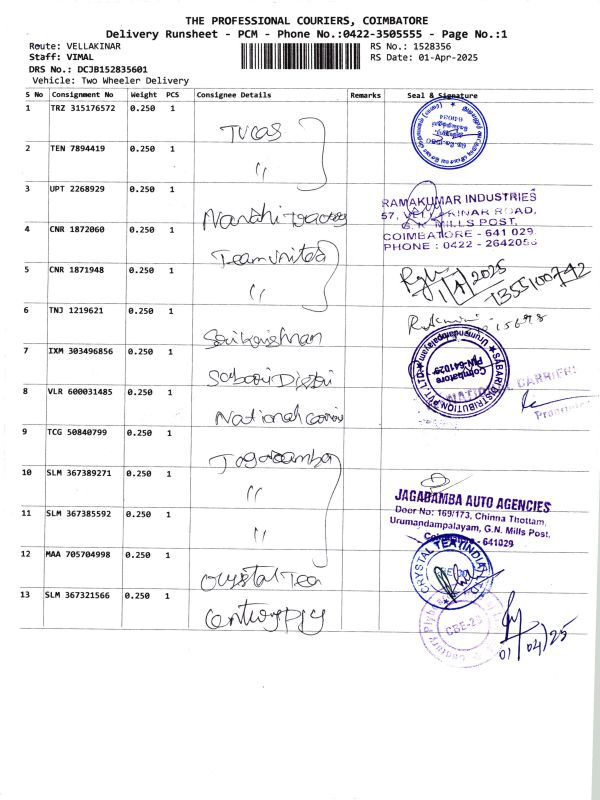 THE PROFESSIONAL COURIERS, COIMBATORE
Delivery Runsheet - PCM - Phone No.:0422-3505555 - Page No.:1
Route: VELLAKINAR
RS No.: 1528356
Staff: VIMAL
RS Date: 01-Apr-2025
DRS No.: DCJB152835601
Vehicle: Two Wheeler Delivery
S No Consignment No Weight PCS Consignee Details Remarks Seal & Signature
1 TRZ 315176572 0.250 1
2 TEN 7894419 0.250 1 "
3 UPT 2268929 0.250 1
RAMAKUMAR INDUSTRIES
57, VELLAKINAR ROAD,
G. N. MILLS POST,
COIMBATORE - 641 029.
PHONE : 0422 - 2642056
4 CNR 1872060 0.250 1 Team united
5 CNR 1871948 0.250 1 "
1/4/2025
6 TNJ 1219621 0.250 1 Sri krishnan
7 IXM 303496856 0.250 1 Sabari Distri
SABARI DISTRIBUTION PVT. LTD.
Urumandampalayam
Coimbatore
PIN-641029
8 VLR 600031485 0.250 1 National carrier
CARRIER
9 TCG 50840799 0.250 1 Jagadamba
10 SLM 367389271 0.250 1 "
JAGADAMBA AUTO AGENCIES
Door No: 169/173, Chinna Thottam,
Urumandampalayam, G.N. Mills Post,
Coimbatore - 641029
11 SLM 367385592 0.250 1 "
12 MAA 705704998 0.250 1 Crystal Tea
CRYSTAL TEA (INDIA) LTD
13 SLM 367321566 0.250 1 Century ply
CBE-29
01/04/25